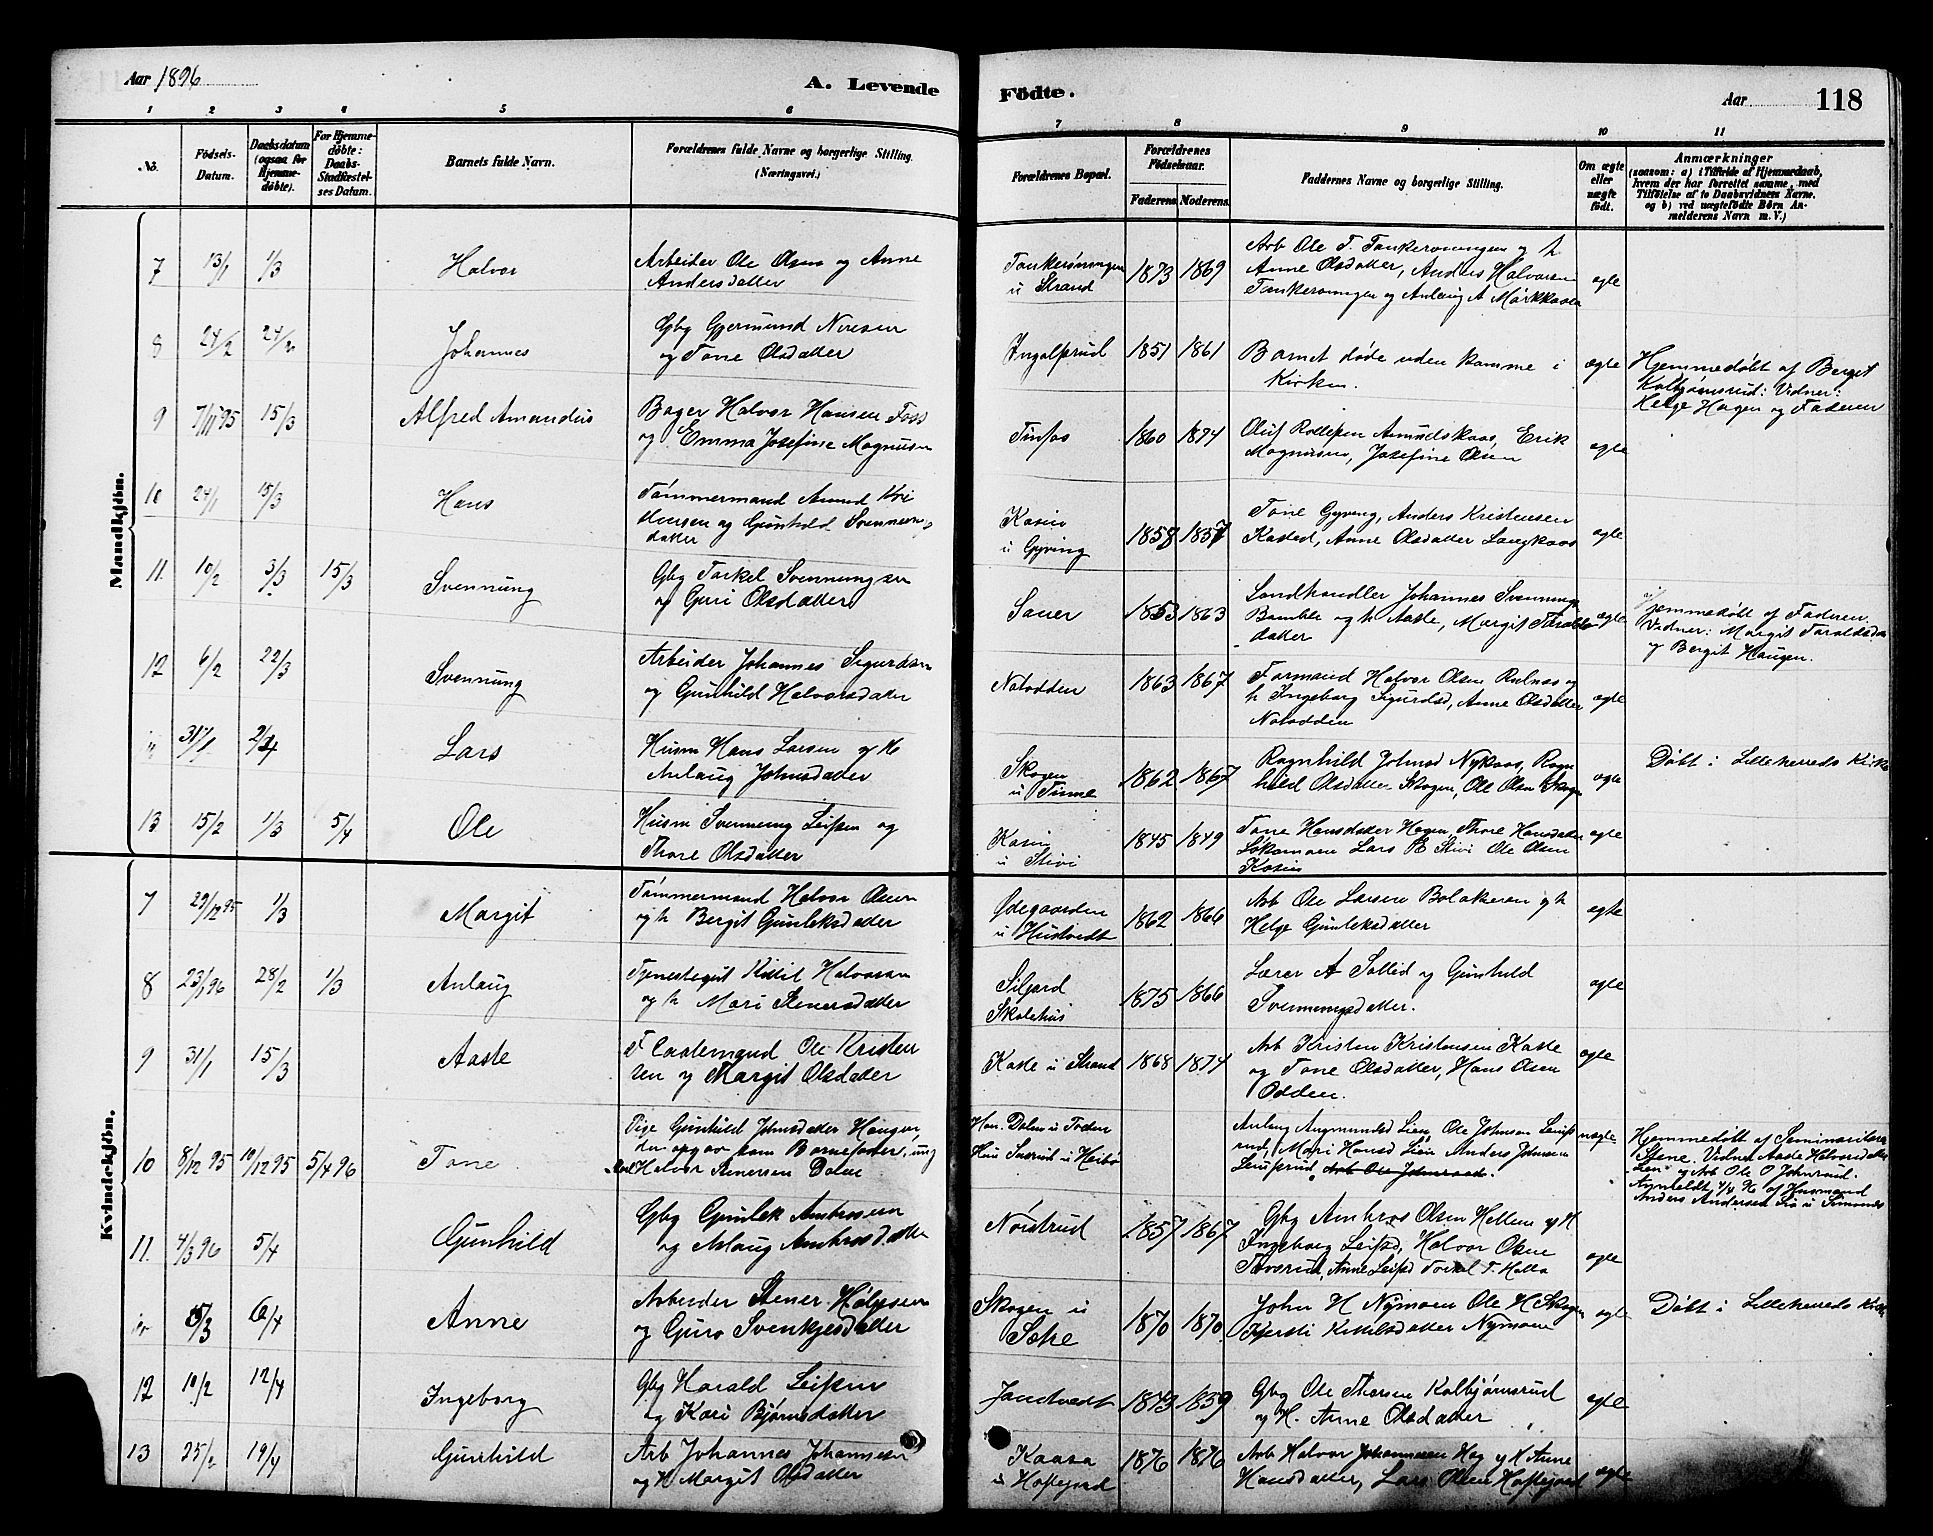 Aar 1896
A. Levende Födte.
Aar 118
1 2 3 4 5 6 7 8 9 10 11
No.
Födsels-Datum.
Daabsdatum (ogsaa for Hjemme-döbte).
For Hjemme-döbte: Daabs-Stadfæstel-ses Datum.
Barnets fulde Navn.
Forældrenes fulde Navne og borgerlige Stilling. (Næringsvei.)
Forældrenes Bopæl.
Forældrenes Födselsaar.
Faderens Moderens
Faddernes Navne og borgerlige Stilling.
Om ægte eller uægte födt.
Anmærkninger
(saasom: a) i Tilfælde af Hjemmedaab,
hvem der har forrettet samme, med
Tilföielse af to Daabsvidners Navne,
og b) ved uægtefödte Börn An-
melderens Navn m. V.)
Mandkjön.
7 13/1 1/3 Halvor
Arbeider Ole Olsen og Anne
Andersdatter
u Strand
1873 1869
Arb Ole T.
Anne Olsdatter, Anders Halvorsen
ægte
8 24/2 24/2 Johannes
Gbg Gjermund
og Tone Olsdatter
Ingolfsrud
1851 1861
Barnet døde uden komme i
Kirken.
ægte
Hjemmedøbt af Berget
Kolbjørnsrud: Vidner:
Helge Hagen og Faderen
9 7/11 95 15/3 Alfred Amandus
Bager Halvor Hansen Foss
og Emma Josefine Magnusen
Tinfos
1860 1874
Oluf Rollefsen Amundskaas, Erik
Magnusen, Josefine Olsen
ægte
10 24/1 15/3 Hans
Tømmermand Amund Kri
stensen og Gunhild Svennungs
datter
Kasin
u Gyving
1858 1857
Tone Gyving, Anders Kristensen
Kasted, Anne Olsdatter Langkaas
ægte
11. 10/2 3/3 15/3 Svennung
Gbg Torkel Svennungsen
og Guri Olsdatter
Sauer
1853 1863
Landhandler Johannes Svennungs
Bamble og h Aaste, Margit Taralds
datter
ægte
Hjemmedøbt af Faderen.
Vidner: Margit Taraldsdatter
og Bergit Haugen.
12 6/2 22/3 Svennung
Arbeider Johannes Sigurdsen
og Gunhild Halvorsdatter
Notodden
1863 1867
Formand Halvor Olsen Rulnes og
h Ingeborg Sigurdsd, Anne Olsdatter
Notodden
ægte
31/1 2/4 Lars
Husm Hans Larsen og H
Anlaug Johnsdatter
Skogen
u Tinne
1862 1867
Ragnhild Johnsd Nykaas, Ragn
hild Olsdatter Skogen, Ole Olsen Skogen
ægte
Døbt i Lilleherreds Kirke
13 15/2 1/3 5/4 Ole
Husm Svennung Leifsen og
Thore Olsdatter
Kasin
u Stivi
1845 1849
Tone Hansdatter Hagen, Thore Hansdatter
Lars E Stivi Ole Olsen
Kasin
ægte
Kvindekjön.
7 29/12 95 1/3 Margit
Tømmermand Halvor Olsen
og h Bergit Gunleksdatter
Ødegaarden
u Hustvedt
1862 1866
Arb Ole Larsen Bolakeren og h
Helge Gunleksdatter
ægte
8 23/1 96 28/2 1/3 Anlaug
Tjenestegut Kittil Halvorsen
og h Mari Stenersdatter
Siljord
Skolehus
1875 1866
Lærer A Sollid og Gunhild
Svennungsdatter.
ægte
9 31/1 15/3 Aaste
Flaatemand Ole Kristen
sen og Margit Olsdatter
Kaste u Strand
1868 1874
Arb Kristen Kristensen Kaste
og Tone Olsdatter, Hans Olsen
Odden.
ægte
10 8/12 95 10/12 95 5/4 96 Tone
Pige Gunhild Johnsdatter Haugen
der opgav som Barnefader, ung
Halvor Stenersen Dalen
Han. Dalen u
Hun u Heibø
Anlaug Angmundsd Lien, Ole Johnsen
rud, Mari Hansd Lien Anders Johnsen
uægte
Hjemmedøbt af Seminarilærer
Stene, Vidner Aaste Halvorsdatter
Lien og Arb Ole O Johnsrud.
Anmeldt 4/4 96 af Husmand
Anders Andersen Lia u
11. 4/3 96 5/4 Gunhild
Gbg Gunlek Ambrosen
og Aslaug Ambrosdatter
Nørstrud
1857 1867
Gbg Ambros Olsen Hellen og H
Ingeborg Leifsd, Halvor Olsen
Anne Leifsd Torkel T. Holla
ægte
15/3 6/4 Anne
Arbeider Stener Helgesen
og Guro Svenkjesdatter
Skogen u
Sæke
1870 1870
John H Nymoen Ole H Skogen
Kjersti Kittilsdatter Nymoen
ægte
Døbt i Lilleherreds Kirke
12 10/2 12/4 Ingeborg
Gbg Harald Leifsen
og Kari Bjørnsdatter
Jantvedt
1873 1859
Gbg Ole Thorsen Kolbjørnsrud
og H. Anne Olsdatter
ægte
13 25/2 19/4 Gunhild
Arb Johannes Johannesen
og H Margit Olsdatter
Kaasa
u Haftejord
1876 1876
Arb Halvor Johannesen Hag og H Anne
Hansdatter, Lars Olsen Haftejord
ægte